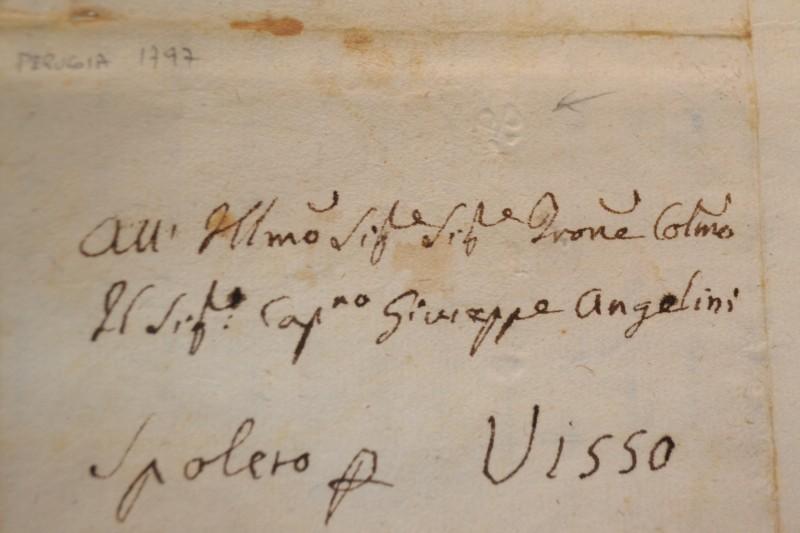 PERUGIA 1797
All' Illmo Sigre Sigre Prone Colmo
Il Sigr: Capno Giuseppe Angelini
Spoleto p Visso